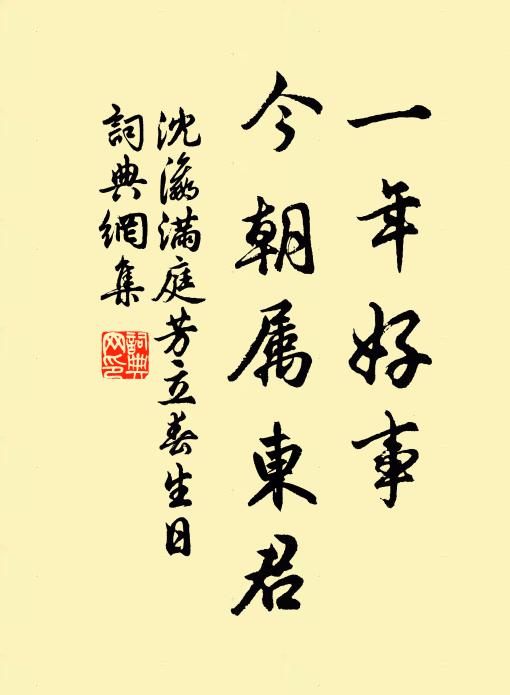 一年好事
今朝属東君
沈瀛满庭芳立春生日
詞典網集
詞典網印